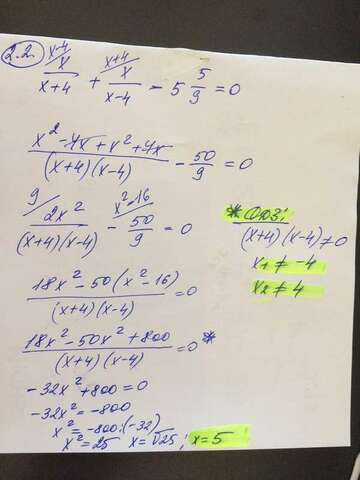 2.2. x-4/ x/(x+4) + x+4/ x/(x-4) - 5 5/9 = 0
(x² - 4x + x² + 4x)/((x+4)(x-4)) - 50/9 = 0
9/ 2x²/((x+4)(x-4)) - x²-16/ 50/9 = 0
* ОДЗ:
(x+4)(x-4)≠0
x1 ≠ -4
x2 ≠ 4
(18x² - 50(x² - 16))/((x+4)(x-4)) = 0
(18x² - 50x² + 800)/((x+4)(x-4)) = 0 *
-32x² + 800 = 0
-32x² = -800
x² = -800:(-32)
x² = 25 x = √25; x = 5